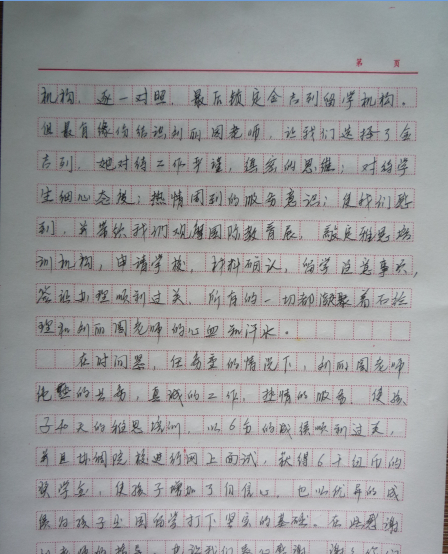 第 页
机构，逐一对照，最后锁定金吉列留学机构。
但最有缘份结识利丽周老师，让我们选择了金
吉列，她对待工作严谨，缜密的思维；对留学
生细心态度；热情周到的服务意识；使我们感
到，并带领我们观摩国际教育展，敲定雅思培
训机构，申请学校，材料确认，留学注意事项，
签证办理顺利过关，所有的一切都凝聚着石桧
理和利丽周老师的心血和汗水。
在时间紧，任务重的情况下，利丽周老师
的真诚的工作，热情的服务，使孩
子40天的雅思培训，以6分的成绩顺利过关，
并且协调院校进行网上面试，获得6千纽币的
奖学金，使孩子增加了自信心，也以优异的成
绩为孩子出国留学打下坚实的基础。在此感谢